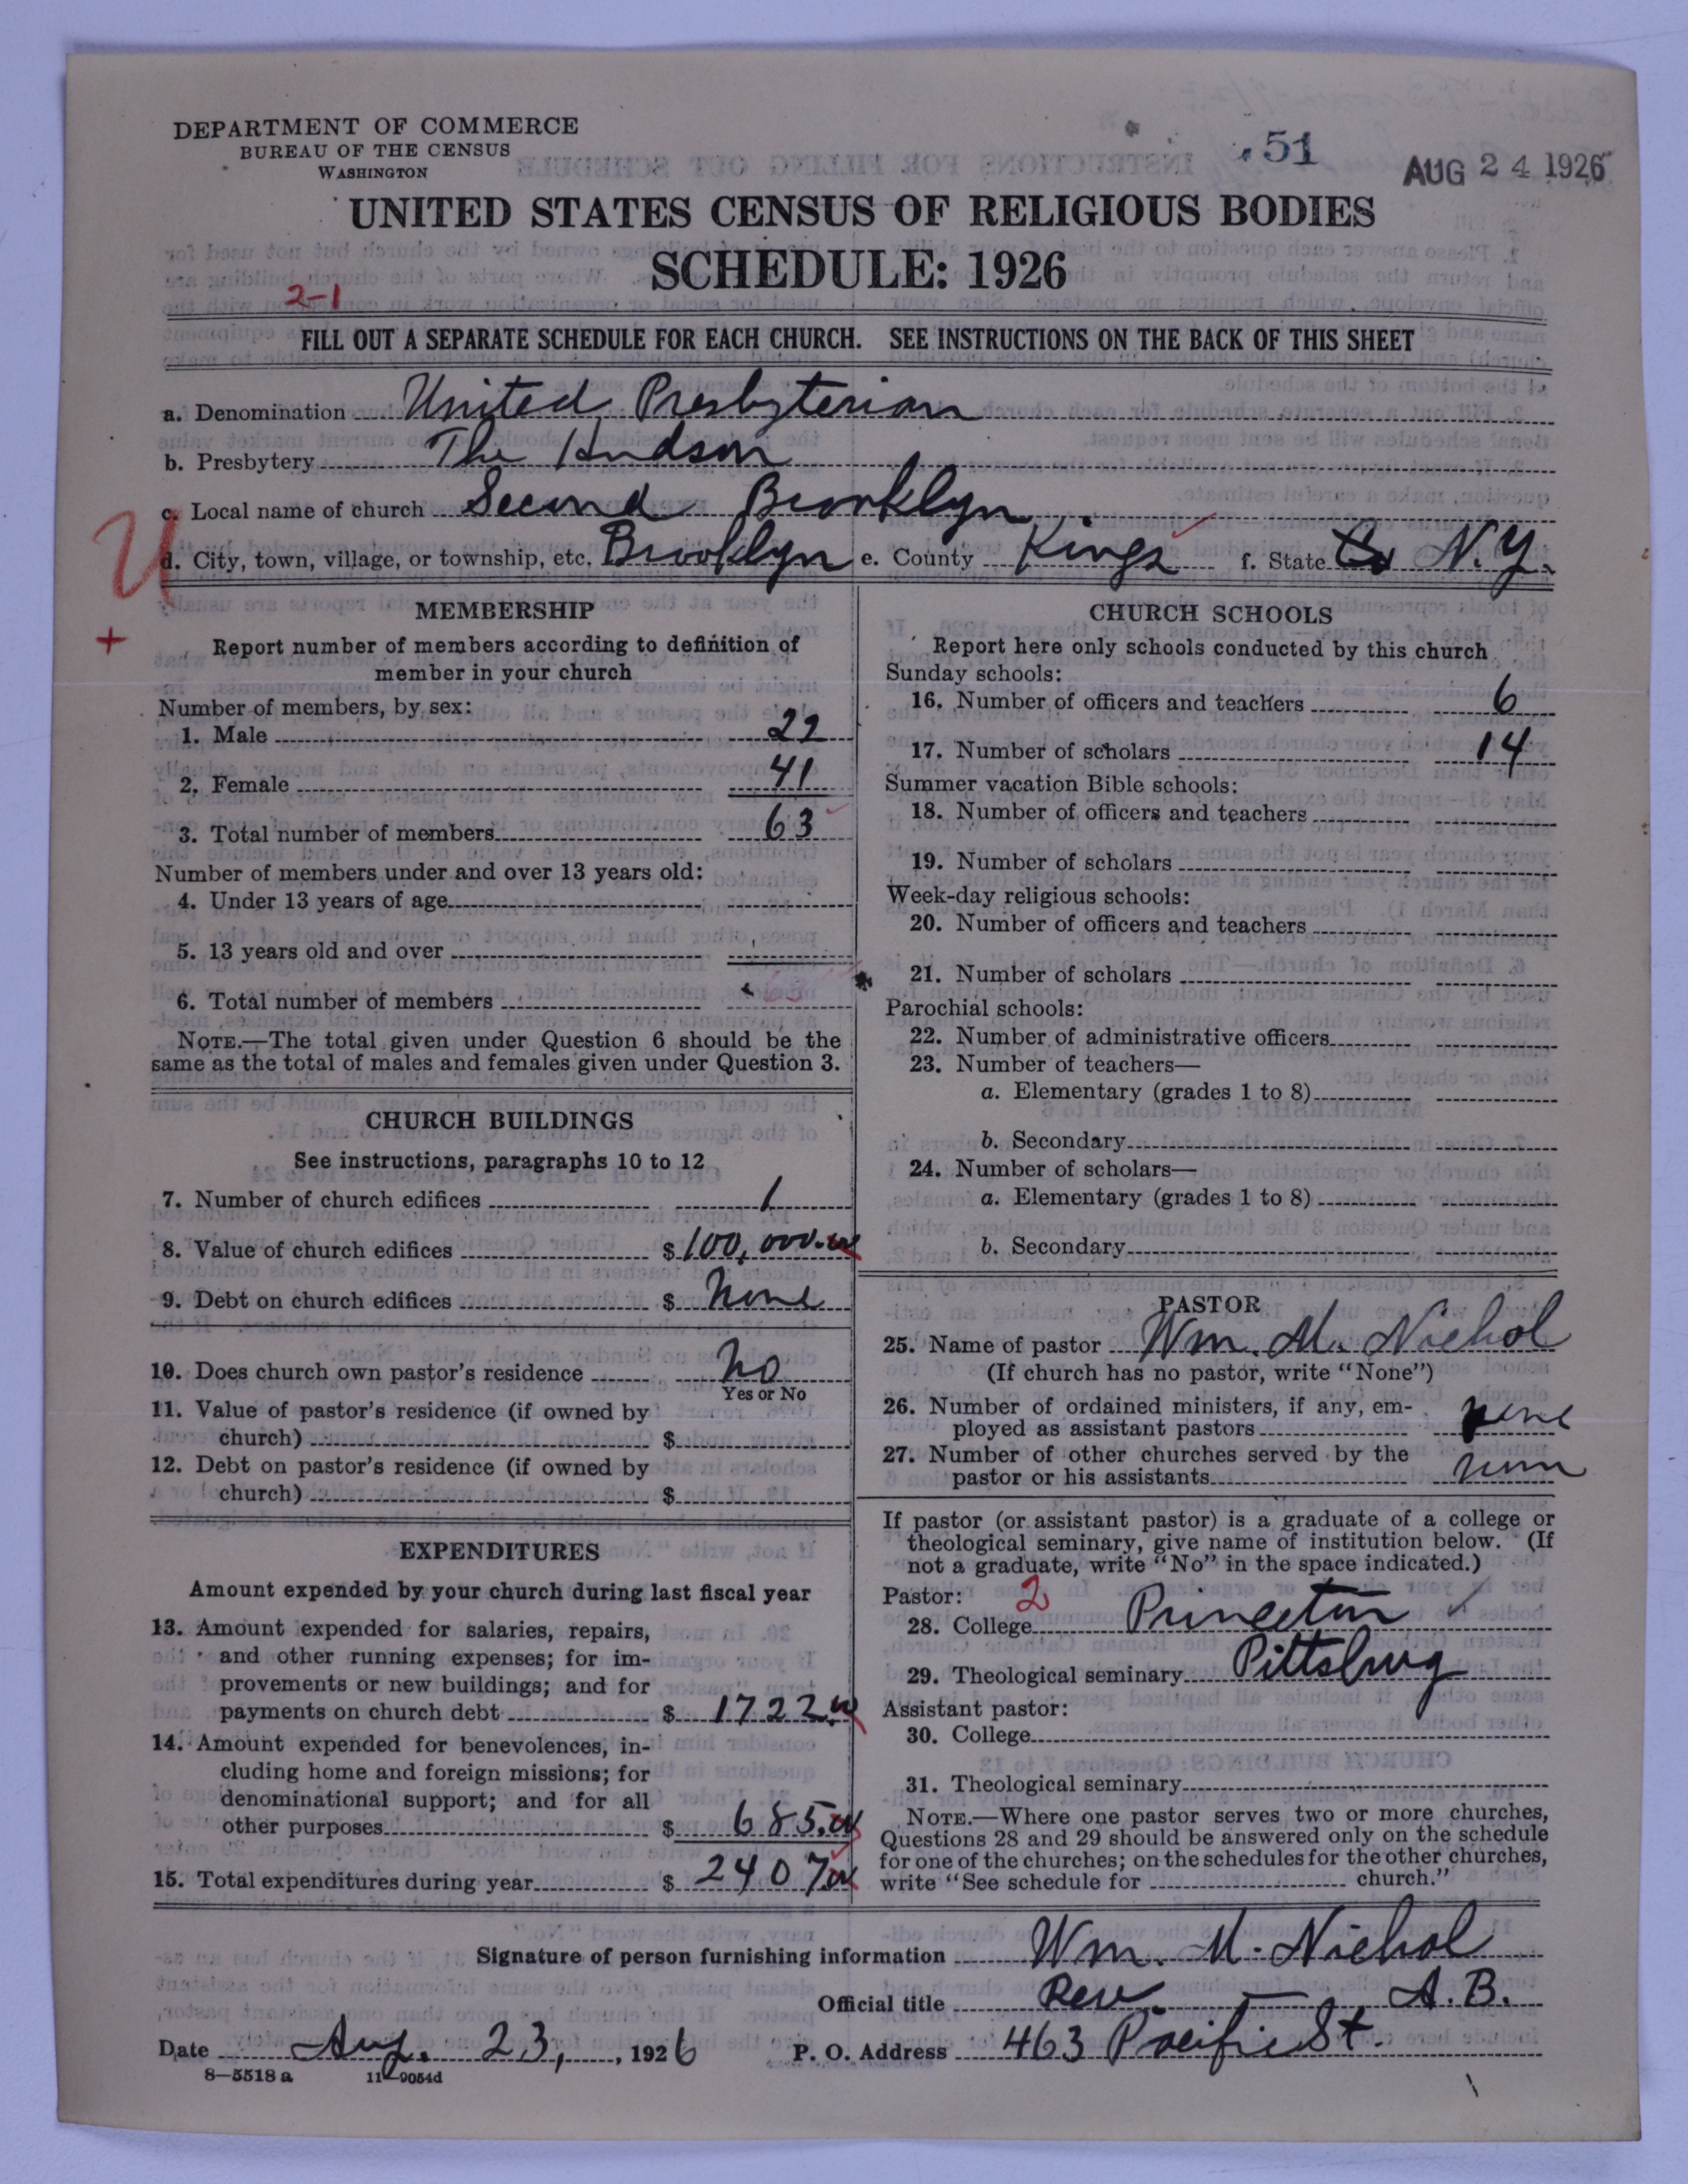 DEPARTMENT OF COMMERCE
BUREAU OF THE CENSUS
WASHINGTON
51
AUG 24 1926
UNITED STATES CENSUS OF RELIGIOUS BODIES
SCHEDULE: 1926
2-1
FILL OUT A SEPARATE SCHEDULE FOR EACH CHURCH. SEE INSTRUCTIONS ON THE BACK OF THIS SHEET
a. Denomination United Presbyterian
b. Presbytery The Hudson
c. Local name of church Second Brooklyn
d. City, town, village, or township, etc. Brooklyn e. County Kings f. State N.Y.
MEMBERSHIP
Report number of members according to definition of
member in your church
Number of members, by sex:
1. Male 22
2. Female 41
3. Total number of members 63
Number of members under and over 13 years old:
4. Under 13 years of age
5. 13 years old and over
6. Total number of members 63
NOTE.—The total given under Question 6 should be the
same as the total of males and females given under Question 3.
CHURCH BUILDINGS
See instructions, paragraphs 10 to 12
7. Number of church edifices 1
8. Value of church edifices $100,000.00
9. Debt on church edifices $ None
10. Does church own pastor's residence No
Yes or No
11. Value of pastor's residence (if owned by
church) $
12. Debt on pastor's residence (if owned by
church) $
EXPENDITURES
Amount expended by your church during last fiscal year
13. Amount expended for salaries, repairs,
and other running expenses; for im-
provements or new buildings; and for
payments on church debt $ 1722.00
14. Amount expended for benevolences, in-
cluding home and foreign missions; for
denominational support; and for all
other purposes $ 685.00
15. Total expenditures during year $ 2407.00
CHURCH SCHOOLS
Report here only schools conducted by this church
Sunday schools:
16. Number of officers and teachers 6
17. Number of scholars 14
Summer vacation Bible schools:
18. Number of officers and teachers
19. Number of scholars
Week-day religious schools:
20. Number of officers and teachers
21. Number of scholars
Parochial schools:
22. Number of administrative officers
23. Number of teachers—
a. Elementary (grades 1 to 8)
b. Secondary
24. Number of scholars—
a. Elementary (grades 1 to 8)
b. Secondary
PASTOR
25. Name of pastor Wm. M. Nichol
(If church has no pastor, write "None")
26. Number of ordained ministers, if any, em-
ployed as assistant pastors none
27. Number of other churches served by the
pastor or his assistants none
If pastor (or assistant pastor) is a graduate of a college or
theological seminary, give name of institution below. (If
not a graduate, write "No" in the space indicated.)
Pastor: 2
28. College Princeton
29. Theological seminary Pittsburg
Assistant pastor:
30. College
31. Theological seminary
NOTE.—Where one pastor serves two or more churches,
Questions 28 and 29 should be answered only on the schedule
for one of the churches; on the schedules for the other churches,
write "See schedule for church."
Signature of person furnishing information Wm. M. Nichol
Official title Rev. — A.B.
Date Aug. 23, 1926 P. O. Address 463 Pacific St.
8—5518 a 11—9054d